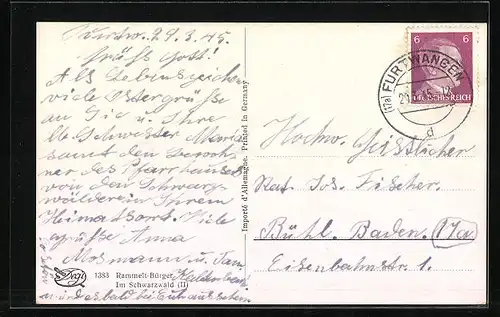 Furtw. 29.3.45.
Grüß Gott!
Als Lebenszeichen
viele Ostergrüße
an Sie u. Ihre
lb. Schwester Maria
samt den Bewoh-
ner des Pfarrhauses
von den Schwarz-
wälderin Ihrem
Heimatort. Viele
Grüße Anna
Mosmann u. Fam.
1383 Rammelt-Bürger
Im Schwarzwald (II)
Importé d'Allemagne. Printed in Germany
6 6
DEUTSCHES REICH
(17a) FURTWANGEN
d
Hochw. Geistlicher
Rat. Jos. Fischer.
Bühl. Baden. 17a
Eisenbahnstr. 1.